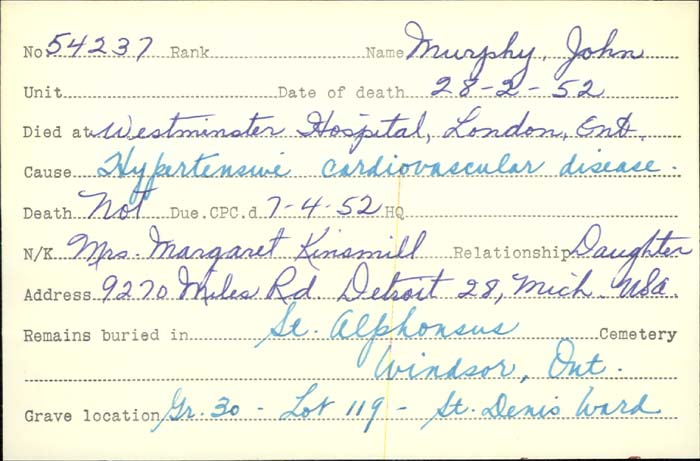 No 54237 Rank Name Murphy, John
Unit Date of death 28-2-52
Died at Westminster Hospital, London, Ont.
Cause Hypertensive cardiovascular disease.
Death Not Due. CPC.d 7-4-52 HQ
N/K Mrs. Margaret Kinsmill Relationship Daughter
Address 9270 Miles Rd Detroit 28, Mich. USA.
Remains buried in St. Alphonsus Cemetery
Windsor, Ont.
Grave location Gr. 30 - Lot 119 - St. Denis Ward